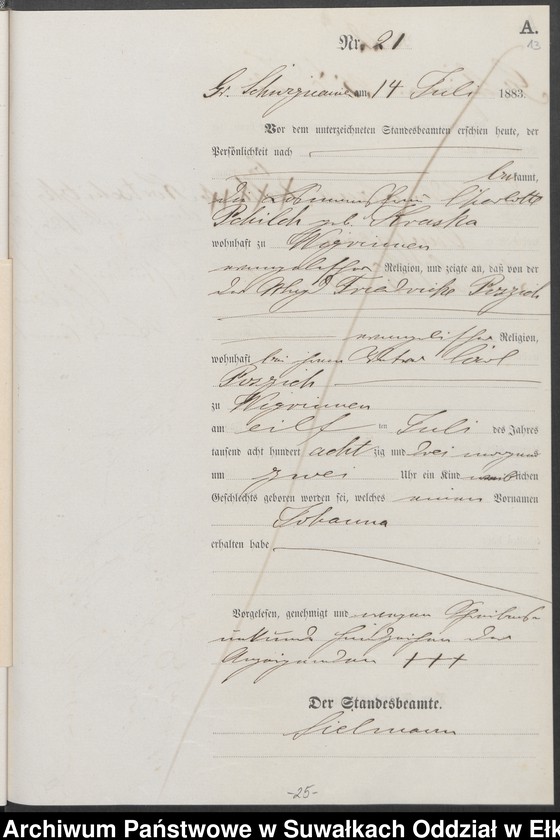 A.
13
Nr. 21
am 14 Juli 1883.
Vor dem unterzeichneten Standesbeamten erschien heute, der
Persönlichkeit nach
bekannt,
die Losmannsfrau Charlotte
geb. Kraska
wohnhaft zu Wigrinnen
evangelischer Religion, und zeigte an, daß von der
der Friedricke
evangelischer Religion,
wohnhaft bei ihrem Vater Carl
zu Wigrinnen
am eilf ten Juli des Jahres
tausend acht hundert acht zig und drei morgens
um zwei Uhr ein Kind weiblichen
Geschlechts geboren worden sei, welches einen Vornamen
Johanna
erhalten habe
Vorgelesen, genehmigt und wegen Schreibens-
unkunde Handzeichen der
Anzeigenden +++
Der Standesbeamte.
Sielmann
-25-
Archiwum Państwowe w Suwałkach Oddział w Ełk